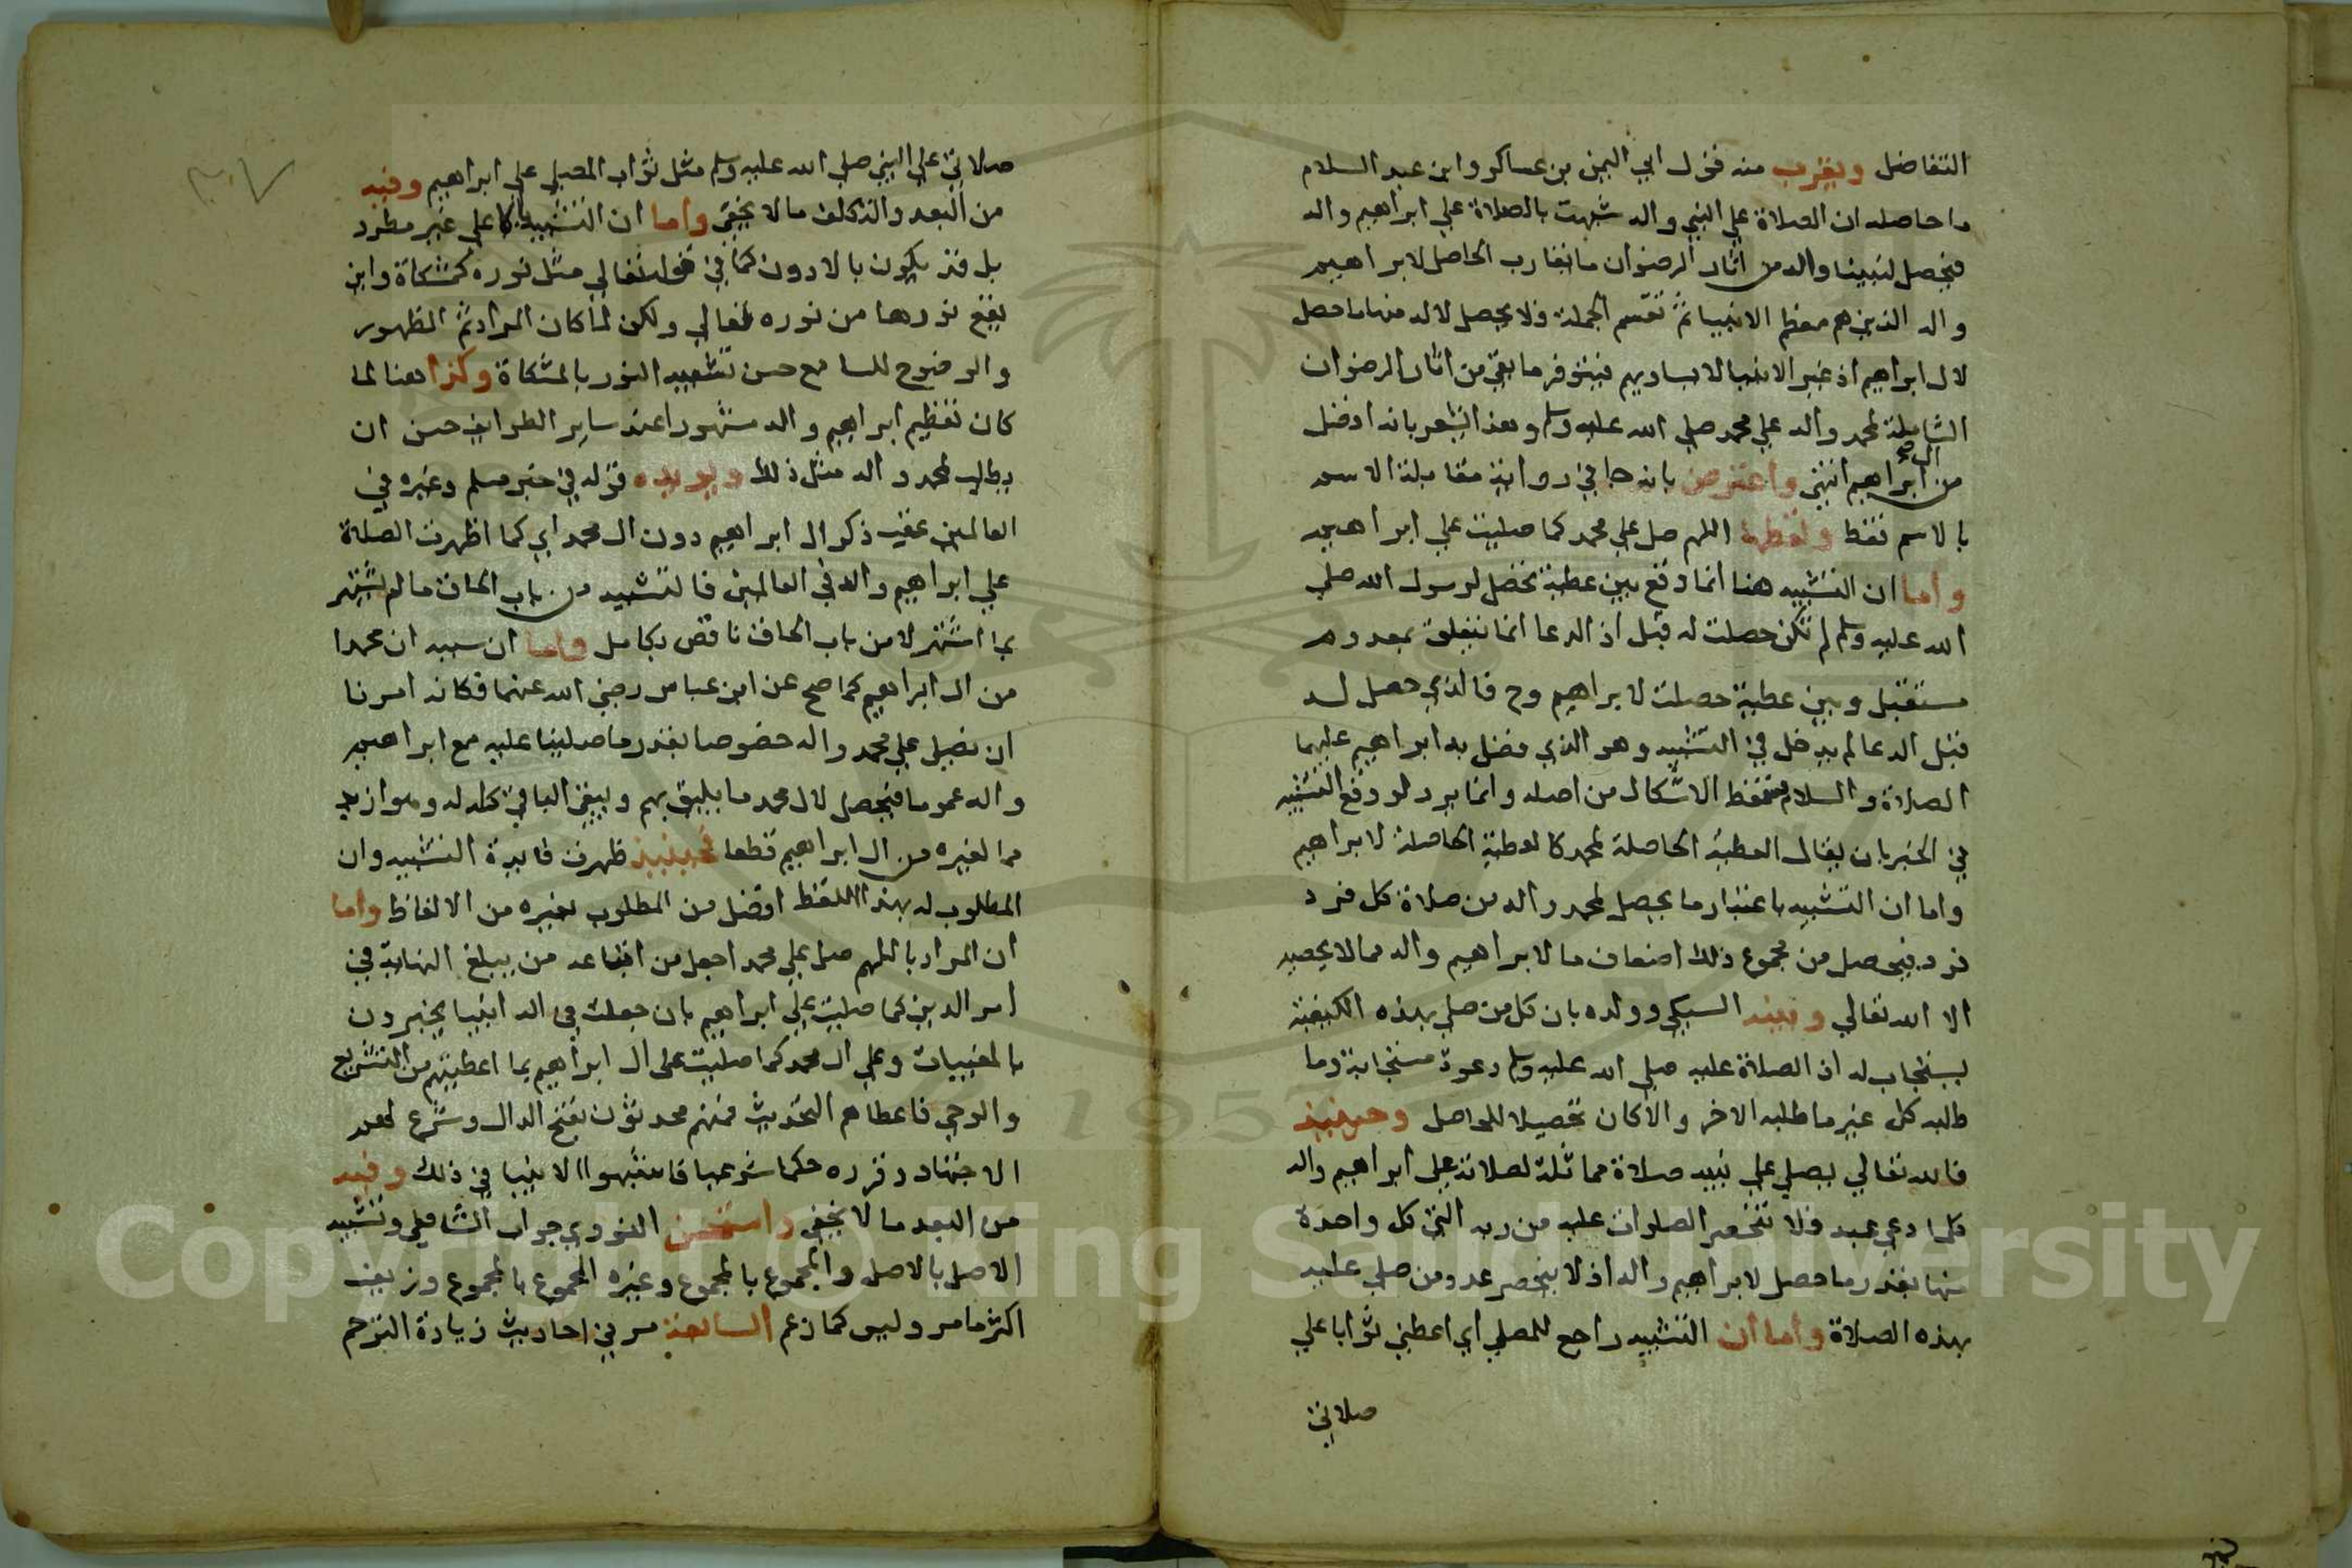 التفاضل ويقرب منه قول ابي اليمن بن عساكر وابن عبد السلام
ما حاصله ان الصلاة على النبي واله شبهت بالصلاة علي ابراهيم واله
فيحصل لنبينا واله من اثار الرضوان ما تقارب الحاصل لابراهيم
واله الذين هم معظم الانبيا ثم تقسم الجملة فلا يحصل لاله منها ما حصل
لال ابراهيم اذ غير الانبيا لا يساويهم فيتوفر ما بقي من اثار الرضوان
الشاملة لمحمد واله علي محمد صلي الله عليه وسلم وهذا يشعر بانه افضل
من ال ابراهيم انتهي واعترض بانه جا في رواية مقابلة الاسم
بالاسم فقط ولفظها اللهم صل علي محمد كما صليت علي ابراهيم
واما ان التشبيه هنا انما وقع بين عطية تحصل لرسول الله صلي
الله عليه وسلم لم تكن حصلت له قبل اذ الدعا انما يتعلق بمعدوم
مستقبل وبين عطية حصلت لابراهيم وح فالذي حصل له
قبل الدعا لم يدخل في التشبيه وهو الذي فضل به ابراهيم عليهما
الصلاة والسلام فسقط الاشكال من اصله وانما يرد لو وقع التشبيه
في الخبر بان يقال العطية الحاصلة لمحمد كالعطية الحاصلة لابراهيم
واما ان التشبيه باعتبار ما يحصل لمحمد واله من صلاة كل فرد
فرد فيحصل من مجموع ذلك اضعاف ما لابراهيم واله مما لا يحصيه
الا الله تعالي وبينه السبكي وولده بان كل من صلي بهذه الكيفية
يستجاب له اذ الصلاة عليه صلي الله عليه وسلم دعوة مستجابة وما
طلبه كل غير ما طلبه الاخر والا كان تحصيلا للحاصل وحينئذ
فالله تعالي يصلي علي نبيه صلاة مماثلة لصلاته علي ابراهيم واله
كلما دعي عبد فلا تنحصر الصلوات عليه من ربه التي كل واحدة
منها بقدر ما حصل لابراهيم واله اذ لا ينحصر عدد من صلي عليه
بهذه الصلاة واما ان التشبيه راجع للمصلي اي اعطني ثوابا علي
صلاتي
٣٠٧
صلاتي علي النبي صلي الله عليه وسلم مثل ثواب المصلي علي ابراهيم وفيه
من البعد والتكلف ما لا يخفي واما ان التشبيه بالاعلي غير مطرد
بل قد يكون بالادون كما في قوله تعالي مثل نوره كمشكاة واين
يقع نورها من نوره تعالي ولكن لما كان المراد ثم الظهور
والوضوح للسامع حسن تشبيه النور بالمشكاة وكذا هنا لما
كان تعظيم ابراهيم واله مشهورا عند ساير الطوايف حسن ان
يطلب لمحمد واله مثل ذلك ويويده قوله في خبر مسلم وغيره في
العالمين عقب ذكر ال ابراهيم دون ال محمد اي كما اظهرت الصلاة
علي ابراهيم واله في العالمين فالتشبيه من باب الحاق ما لم يشتهر
بما اشتهر لا من باب الحاق ناقص بكامل واما ان سببه ان محمدا
من ال ابراهيم كما صح عن ابن عباس رضي الله عنهما فكانه امرنا
ان نصلي علي محمد واله خصوصا بقدر ما صلينا عليه مع ابراهيم
واله عموما فيحصل لال محمد ما يليق بهم ويبقي الباقي كله له وهو ازيد
مما لغيره من ال ابراهيم قطعا فحينئذ ظهرت فايدة التشبيه وان
المطلوب له بهذا اللفظ افضل من المطلوب بغيره من الالفاظ واما
ان المراد باللهم صل علي محمد اجعل من اتباعه من يبلغ النهاية في
امر الدين كما صليت علي ابراهيم بان جعلت في اله انبيا يخبرون
بالمغيبات وعلي ال محمد كما صليت على ال ابراهيم بما اعطيتهم من التشريع
والوحي فاعطاهم التحديث فمنهم محدثون بفتح الدال وشرع لهم
الاجتهاد وقرره حكما شرعيا فاشبهوا الانبيا في ذلك وفيه
من البعد ما لا يخفي واستحسن النووي جواب الشافعي وتشبيه
الاصل بالاصل والمجموع بالمجموع وغيره المجموع بالمجموع وزيف
اكثر ما مر وليس كما زعم السابعة مر في احاديث زيادة الترحم